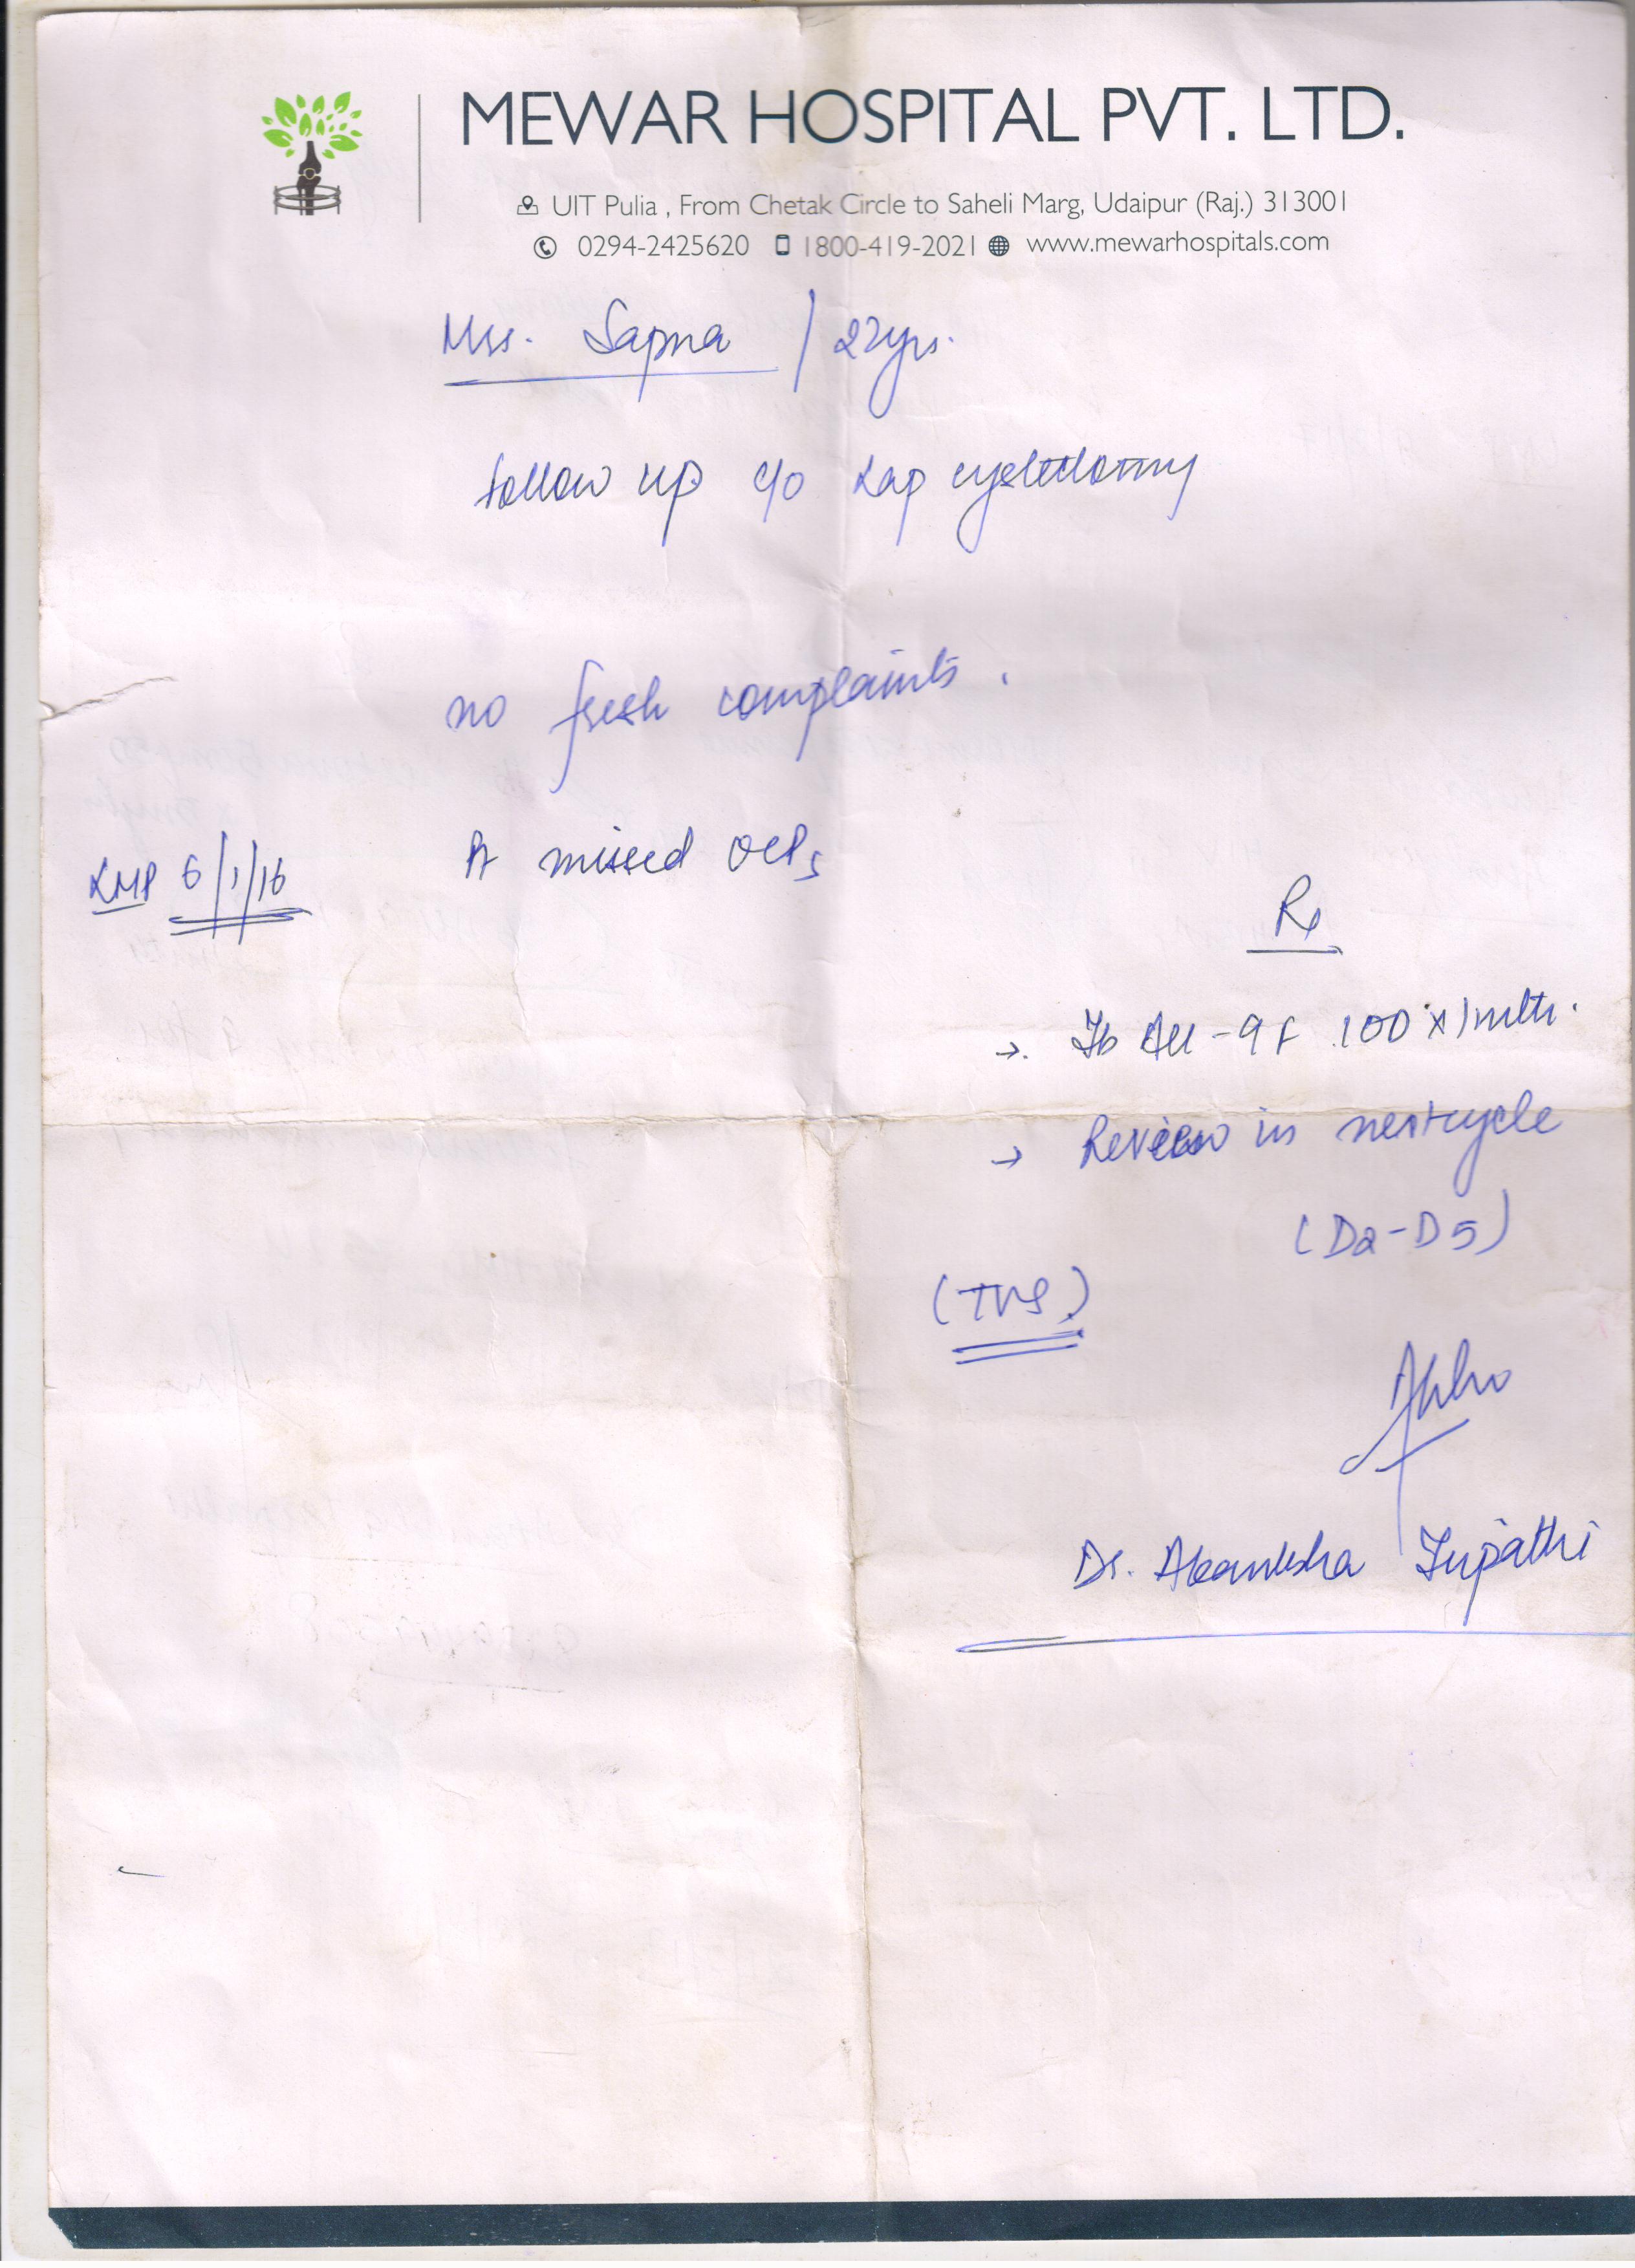 MEWAR HOSPITAL PVT. LTD.
UIT Pulia , From Chetak Circle to Saheli Marg, Udaipur (Raj.) 313001
0294-2425620 1800-419-2021 www.mewarhospitals.com
Mrs. Sapna / 22yrs.
follow up c/o Lap cystectomy
no fresh complaints.
LMP 6/1/16
Pt missed OCPs
Rx
→. Tb 100 x 1 mth.
→ Review in next cycle
(D2-D5)
(TVS)
Dr. Akanksha Tripathi